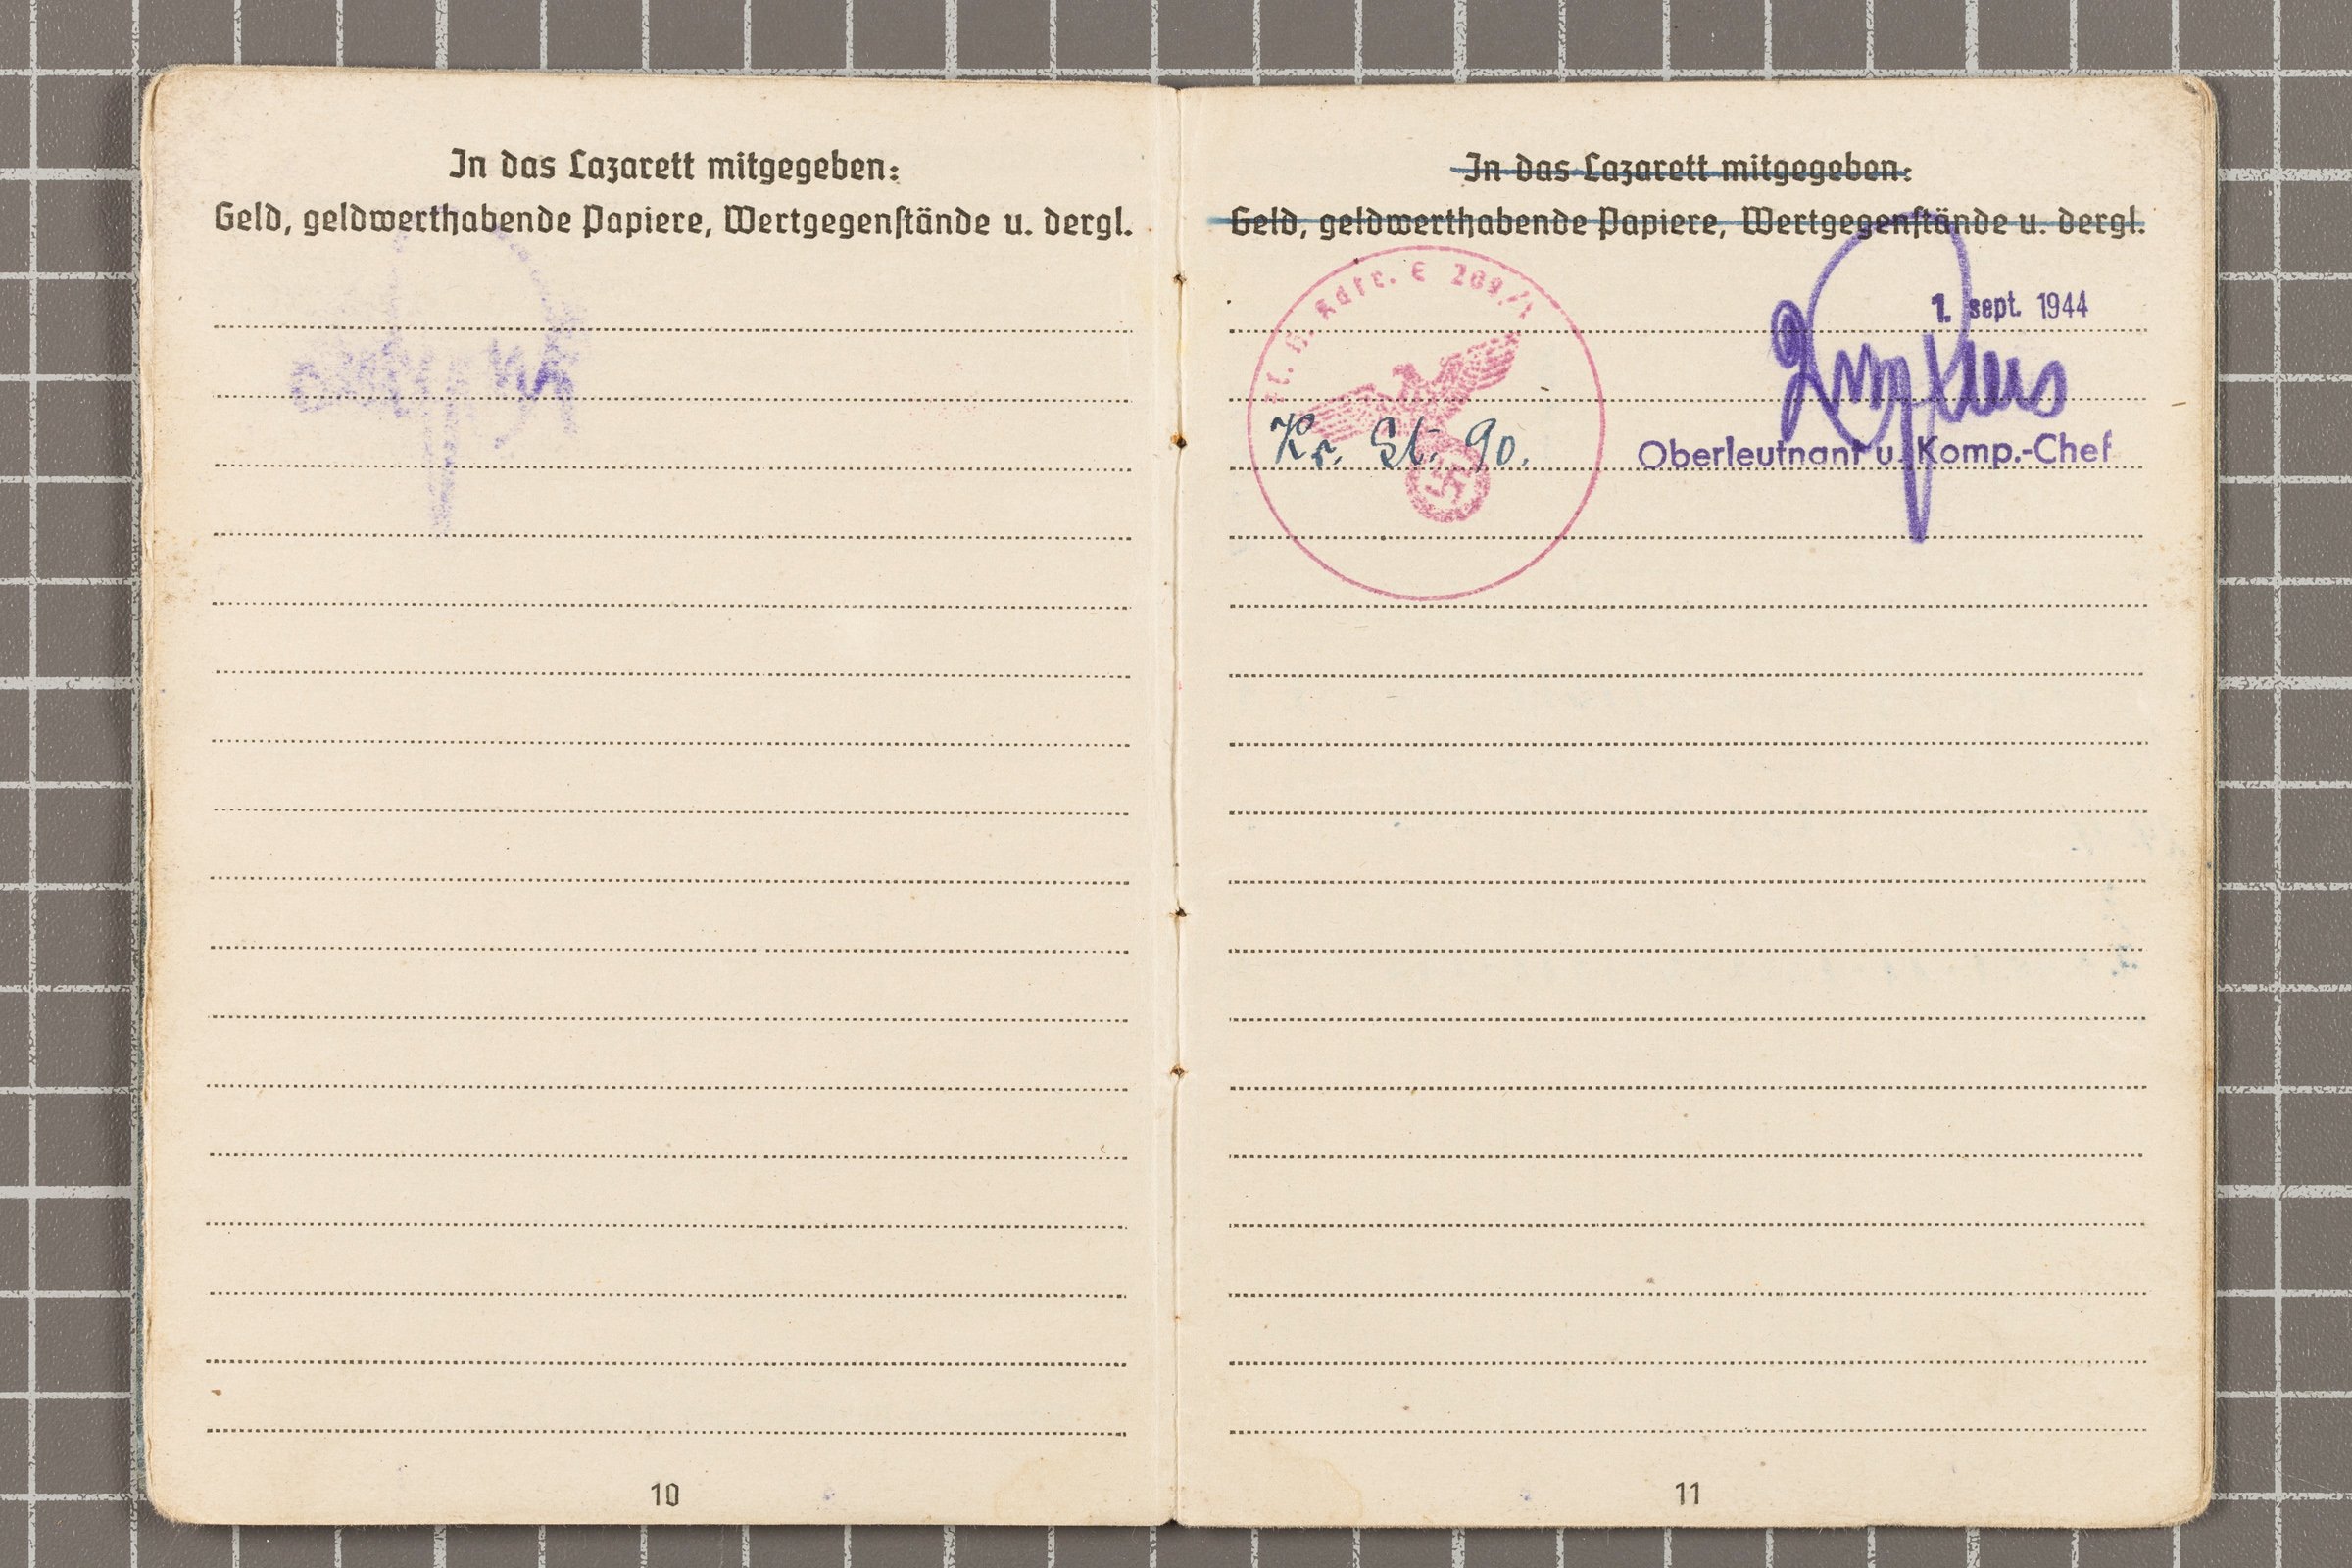 In das Lazarett mitgegeben:
Geld, geldwerthabende Papiere, Wertgegenſtände u. dergl.
10
In das Lazarett mitgegeben:
Geld, geldwerthabende Papiere, Wertgegenſtände u. dergl.
1. sept. 1944
Kr. St. 90.
Oberleutnant u. Komp.-Chef
11